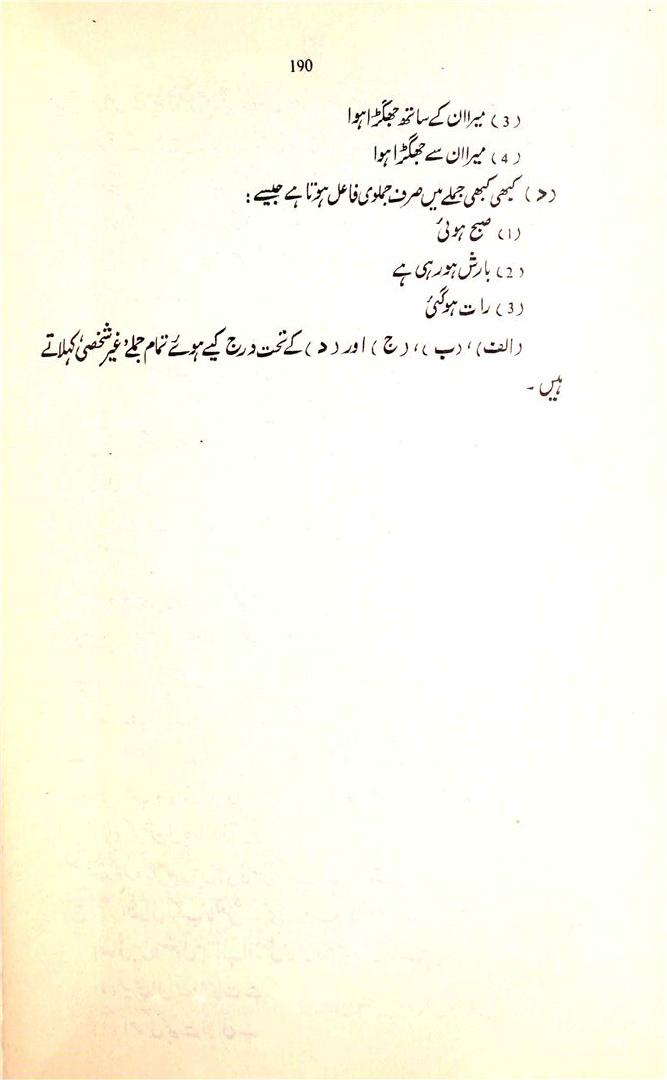 190
(3) میرا ان کے ساتھ جھگڑا ہوا
(4) میرا ان سے جھگڑا ہوا
(د) کبھی کبھی جملے میں صرف جملوی فاعل ہوتا ہے جیسے :
(1) صبح ہوئی
(2) بارش ہو رہی ہے
(3) رات ہو گئی
(الف)، (ب)، (ج) اور (د) کے تحت درج کیے ہوئے تمام جملے 'غیر شخصی' کہلاتے
ہیں ۔